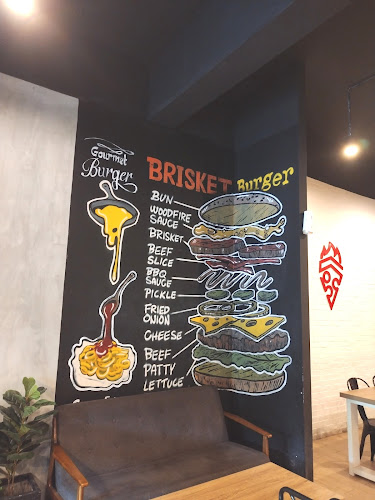 Gourmet
Burger
BRISKET Burger
BUN
WOODFIRE
SAUCE
BRISKET
BEEF
SLICE
BBQ
SAUCE
PICKLE
FRIED
ONION
CHEESE
BEEF
PATTY
LETTUCE